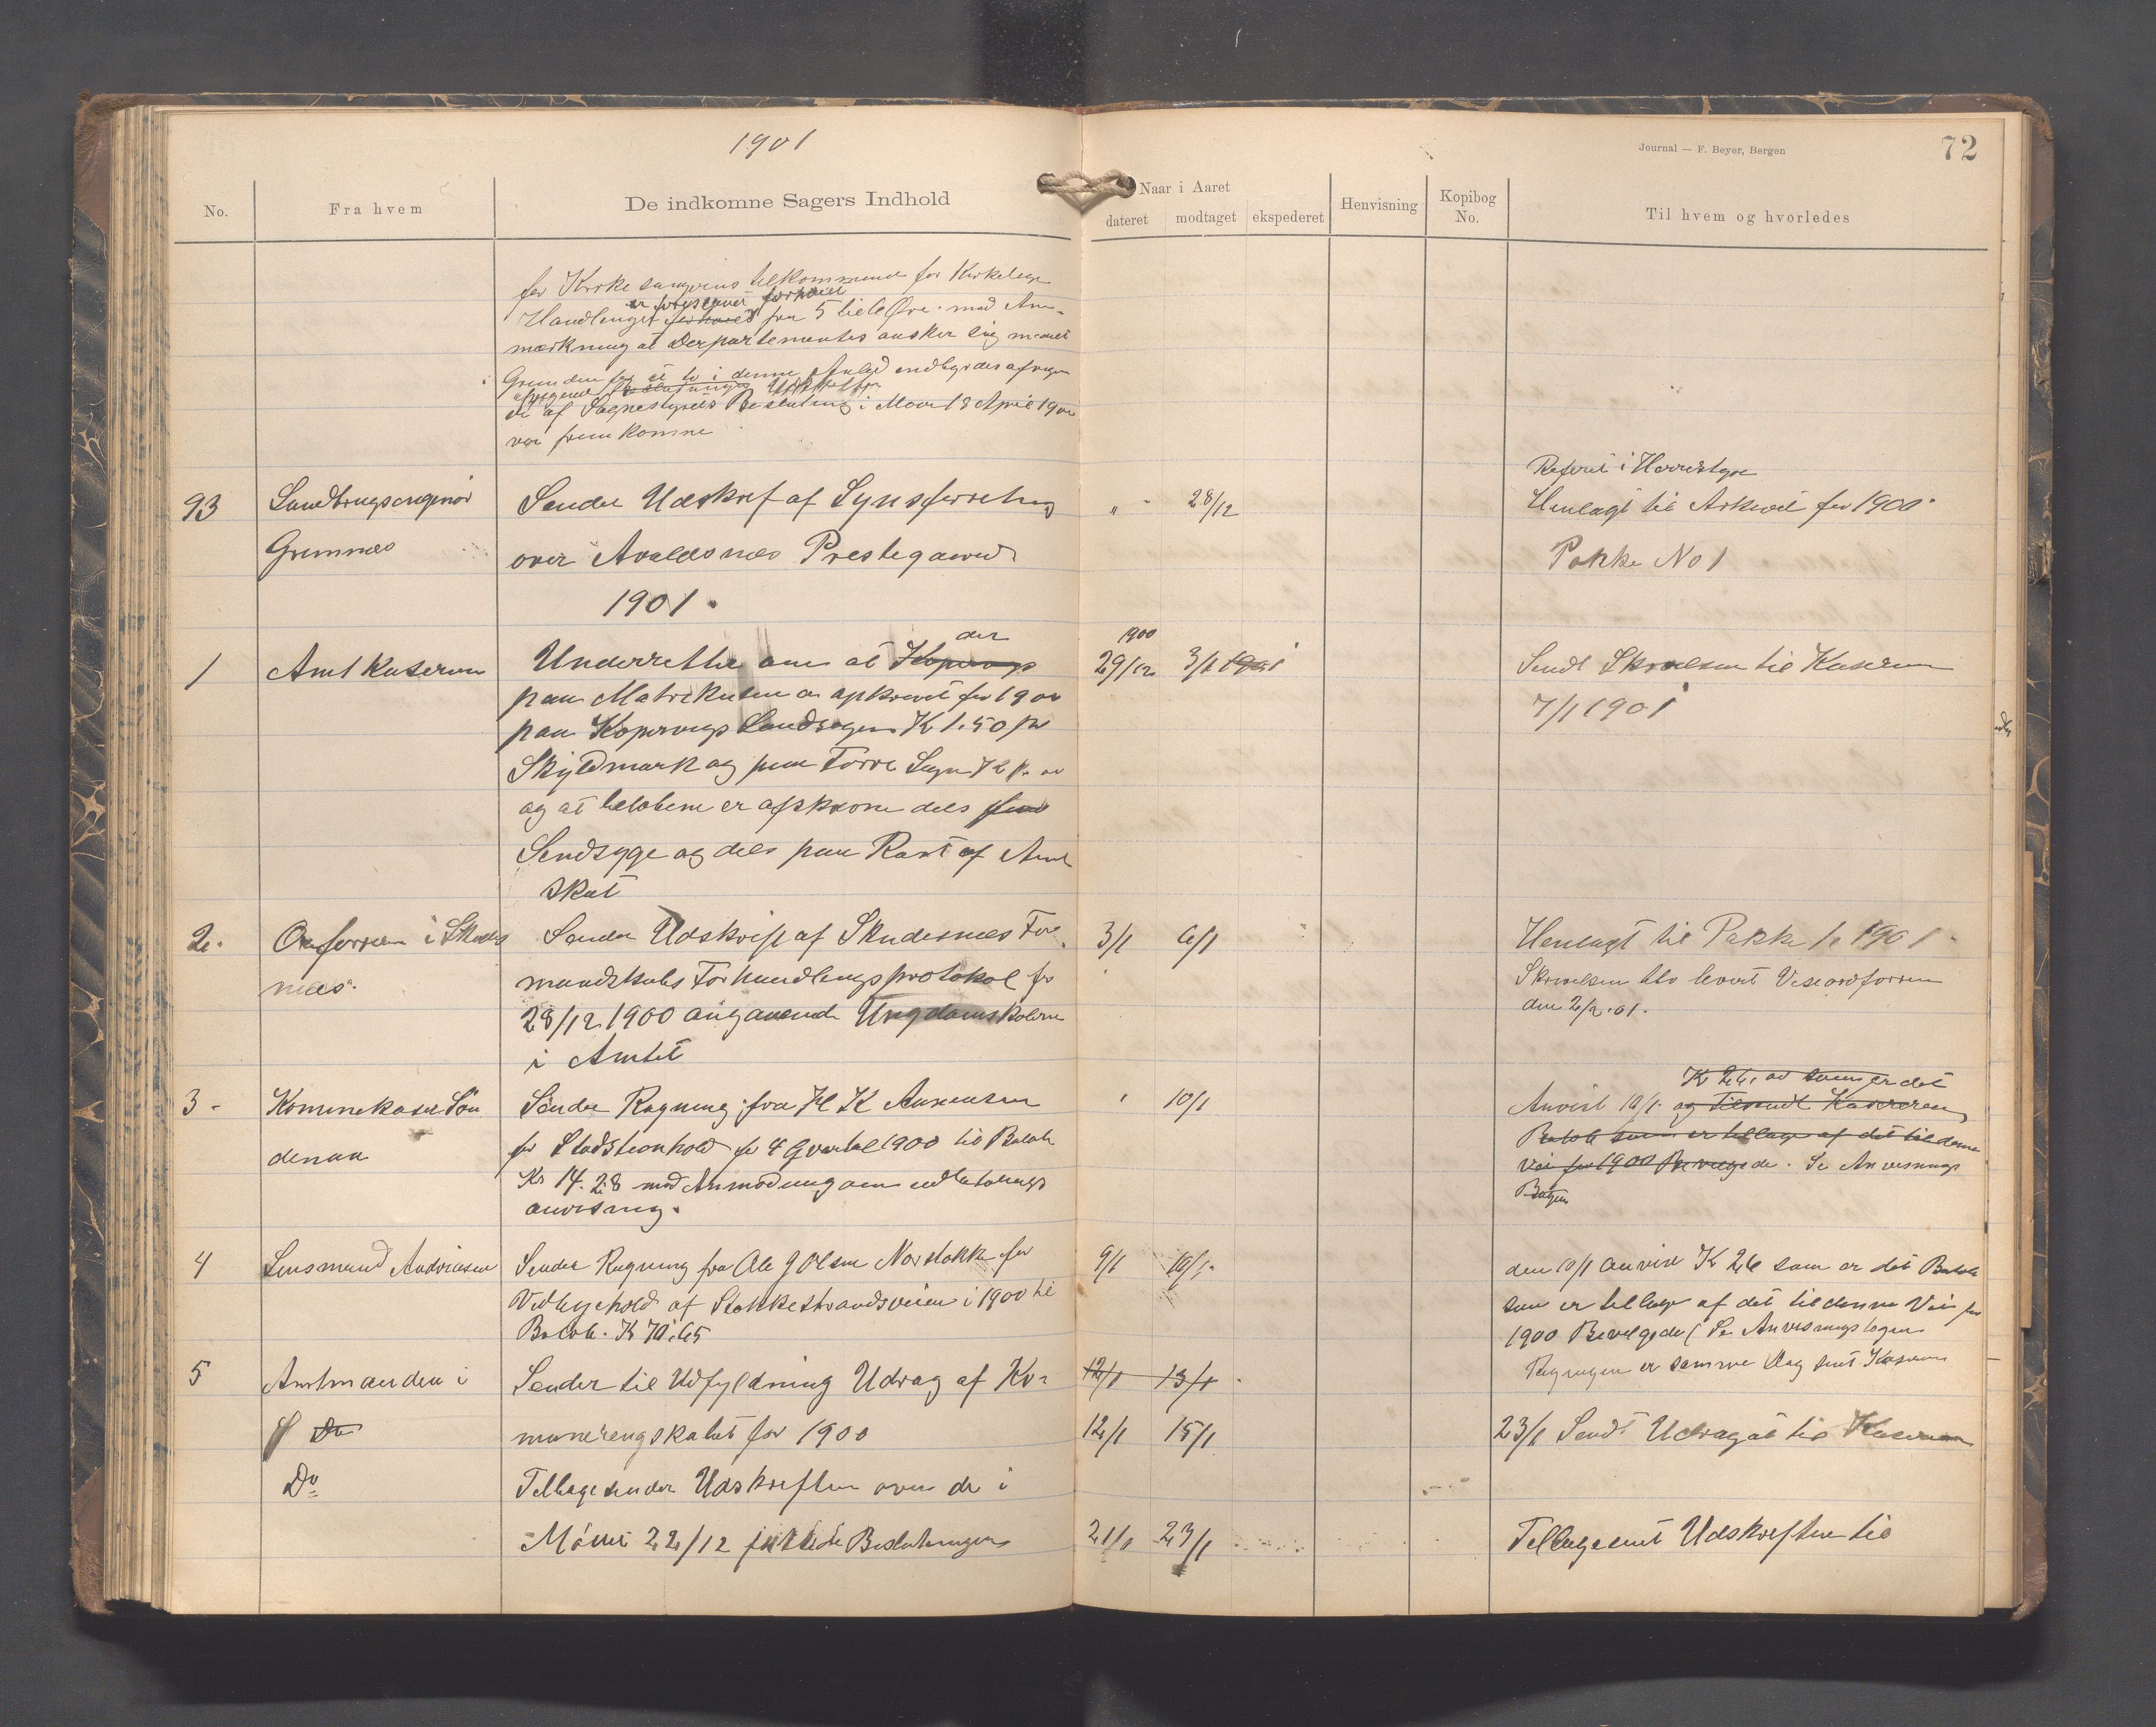 1901
Journal — F. Beyer, Bergen
72
No.
Fra hvem
De indkomne Sagers Indhold
Naar i Aaret
dateret modtaget ekspederet
Henvisning
Kopibog No.
Til hvem og hvorledes
for Kirkesangerens tilkommende for Kirkelige
er foreslaaet forhøiet
fra 5 til 6 Øre med An-
mærkning at Departementet ønsker sig meddelt
Grunden for at to i denne
af Sognestyrets Beslutning i Møde 18 April 1900
var fremkomne
Referet i Herredstyre
93 Landbrugsingeniør Sender Udskrif af Synsforretning " " 28/12 Henlagt til Arkivet for 1900
Grimnes over Avaldsnes Prestegaard Pakke No 1
1901.
der 1900
1 Amtkaseren Underretter om at Kopervigs 29/12 3/1 1901 Sendt Skrivelsen til Kaseren
paa Matrikulen er opkrævet for 1900 7/1 1901
paa Kopervigs Landsogn K 1.50 pr
Skyldmark og paa Torve Sogn K
og at beløbene er afskrevne dels paa
Sindsyge og dels paa Rest af Amt
skat
2. Orforeren i Skudes Sender Udskrift af Skudesnes For- 3/1 6/1 Henlagt til Pakke 1 1901.
nes. mandskabs Forhandlingsprotokol for Skrivelsen blev levert Viseordføreren
28/12 1900 angaaende Ungdomskolerne den 2/2.01.
i Amtet
3 - Komunekaser Søn Sender Regning fra H K Anensen " 10/1 Anvist 10/1 og tilsendt Kasereren
K 26, av som er det
denaa for Stadstionhold for 4 Qvartal 1900 til Beløb Beløb som er tillags af det til denne
Kr 14.28 med Anmodning om udbetalings Vei for 1900 Bevilgede. Se Anvisnings
anvisning. Bogen
4 Lensmand Andreasen Sender Regning fra Ole G Olsen Norstokke for 9/1 10/1. den 10/1 anvist K 26 som er det Beløb
Vedligehold af Stokkestrandsveien i 1900 til som er tillags af det til denne Vei for
Beløb. K 70,65 1900 Bevilgede (Se Anvisningsbogen
Regningen er samme Dag sent Kaseren
5 Amtmanden i Sender til Udfyldning Udrag af Ko- 12/1 13/1.
Do muneregnskabet for 1900 12/1 15/1 23/1 Sendt Udraget til Kaseren
Do Tilbagesender Udskriften over de i
Møde 22/12 fattede Beslutninger 21/1 23/1 Tilbagesent Udskriften til